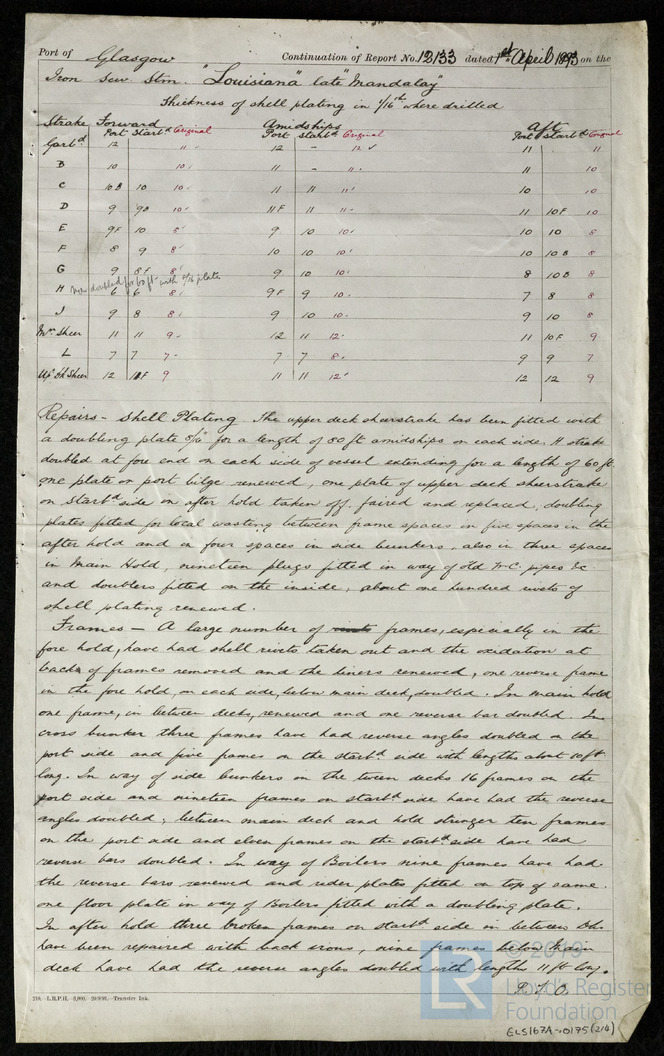 Port of Glasgow Continuation of Report No. 12133 dated 1st April 1893 on the
Iron Scw Stm. "Louisiana" late "Mandalay"
Thickness of shell plating in 1/16th where drilled
Strake Forward Amidships Aft
Port Starbd Original Port Starbd Original Port Starbd Original
Garbd 12 11 12 - 12 ✓ 11 11
B 10 10 11 - 11 11 10
C 10B 10 10 11 11 11 10 10
D 9 9B 10 11F 11 11 11 10F 10
E 9F 10 8 9 10 10 10 10 8
F 8 9 8 10 10 10 10 10B 8
G 9 8F 8 9 10 10 8 10B 8
Now doubled for 60 ft with 8/16 plate
H 6 6 8 9F 9 10 7 8 8
J 9 8 8 9 10 10 9 10 8
Mn Sheer 11 11 9 12 11 12 11 10F 9
L 7 7 7 7 7 8 9 9 7
Up. Dk Sheer 12 11F 9 11 11 12 12 12 9
Repairs - Shell Plating The upper deck sheerstrake has been fitted with
a doubling plate 8/16 for a length of 80 ft amidships on each side, H strake
doubled at fore end on each side of vessel extending for a length of 60 ft,
one plate on port bilge renewed, one plate of upper deck sheerstrake
on Starbd side in after hold taken off, faired and replaced, doubling
plates fitted for local wasting between frame spaces in five spaces in the
after hold and in four spaces in side bunkers, also in three spaces
in Main Hold, nineteen plugs fitted in way of old W.C. pipes &c
and doublers fitted on the inside, about one hundred rivets of
shell plating renewed.
Frames - A large number of frames, especially in the
fore hold, have had shell rivets taken out and the oxidation at
backs of frames removed and the liners renewed, one reverse frame
in the fore hold, on each side, below main deck, doubled. In main hold
one frame, in between decks, renewed and one reverse bar doubled. In
cross bunker three frames have had reverse angles doubled on the
port side and five frames on the starbd side with lengths about 10 ft
long. In way of side bunkers in the tween decks 16 frames on the
port side and nineteen frames on starbd side have had the reverse
angles doubled; between main deck and hold stringer ten frames
on the port side and eleven frames on the starbd side have had
reverse bars doubled. In way of Boilers nine frames have had
the reverse bars renewed and rider plates fitted on top of same.
one floor plate in way of Boilers fitted with a doubling plate.
In after hold three broken frames on starbd side in between Dks
have been repaired with back irons, nine frames below Main
deck have had the reverse angles doubled with lengths 11 ft long.
P.T.O.
210.-L.R.P.H.-
-Transfer Ink.
LR © 2019
Lloyd's Register
Foundation
ELS167A-0175(2/4)